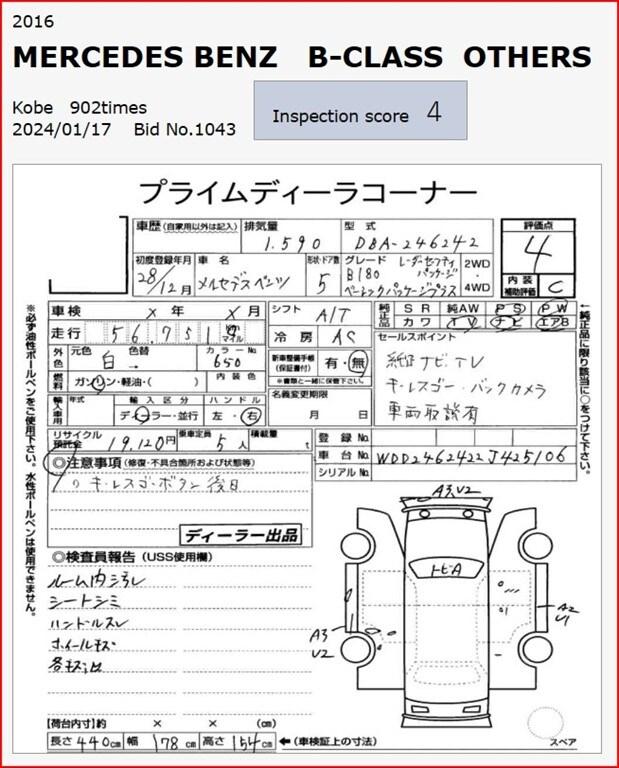 2016
MERCEDES BENZ B-CLASS OTHERS
Kobe 902times
2024/01/17 Bid No.1043
Inspection score 4
プライムディーラコーナー
車歴 (自家用以外は記入) 排気量 型式 評価点
1.590 DBA-246242 4
初度登録年月 車名 形状・ドア数 グレード レーダーセーフティパッケージ 2WD・4WD
28/12月 メルセデスベンツ 5 B180 ベーシックパッケージプラス 内装補助評価 C
車検 × 年 × 月 シフト A/T 純正品 SR 純AW PS PW
走行 56,751 マイル 冷房 AC カワ TV ナビ エアB
外色 元色 色替 カラーNo. 新車整備手帳 (保証書付) 有・無 セールスポイント
白 650 ※書類と一緒に保管下さい。 純正ナビ.TV
燃料 ガソリン・軽油・( ) 内装色 名義変更期限 キーレスゴー・バックカメラ
輸入車用 年式 輸入区分 ハンドル 月 日 車両取説有
ディーラー・並行 左・右
リサイクル預託金 19,120円 乗車定員 5人 積載量 t 登録No.
車台No. WDD2462422J425106
シリアルNo.
◎注意事項 (修復・不具合箇所および状態等)
キーレスゴーボタン後日
ディーラー出品
◎検査員報告 (USS使用欄)
ルーム内汚レ
シートシミ
ハンドルスレ
ホイールキズ
【荷台内寸】約 × × (cm)
長さ 440cm 幅 178cm 高さ 154cm ←(車検証上の寸法)
A3.V2
トビA
A3
V2
A2
U1
スペア
※必ず油性ボールペンをご使用下さい。水性ボールペンは使用できません。
←純正品に限り該当に○をつけて下さい。